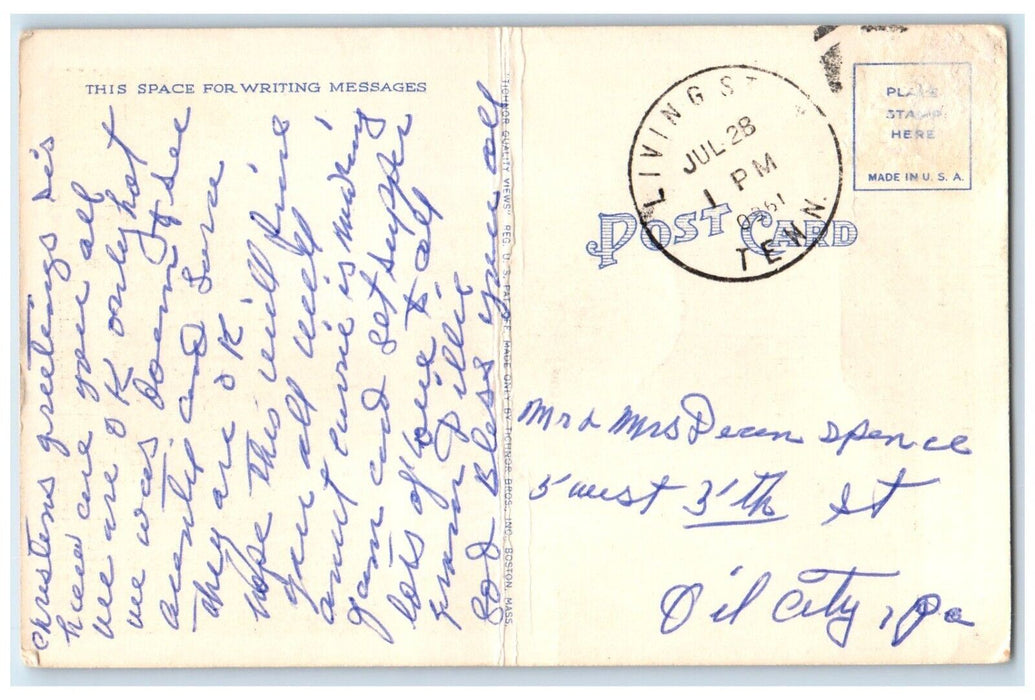 THIS SPACE FOR WRITING MESSAGES
christens greetings sis
how are you all
we are OK only hot
we was Down to see
aunt and Lura
they are OK
Hope this will find
you all well
aunt annie is making
jam and get supper
lots of love to all
from Tillie
God Bless you all
"TICHNOR QUALITY VIEWS" REG. U. S. PAT. OFF. MADE ONLY BY TICHNOR BROS., INC., BOSTON, MASS.
LIVINGST
JUL 28
1 PM
1960
TENN.
PLACE
STAMP
HERE
MADE IN U. S. A.
POST CARD
Mr & Mrs Dean Spence
5 west 3'th St
Oil City, Pa